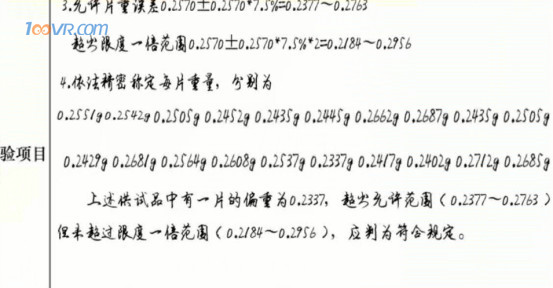 3.允许片重误差0.2570±0.2570*7.5%=0.2377～0.2763
100VR.COM
超出限度一倍范围0.2570±0.2570*7.5%*2=0.2184～0.2956
4.依法精密称定每片重量，分别为
0.2551g 0.2542g 0.2505g 0.2452g 0.2435g 0.2445g 0.2662g 0.2687g 0.2435g 0.2505g
验项目
0.2429g 0.2681g 0.2564g 0.2608g 0.2537g 0.2337g 0.2417g 0.2402g 0.2712g 0.2685g
上述供试品中有一片的偏重为0.2337，超出允许范围（0.2377～0.2763）
但未超过限度一倍范围（0.2184～0.2956），应判为符合规定。